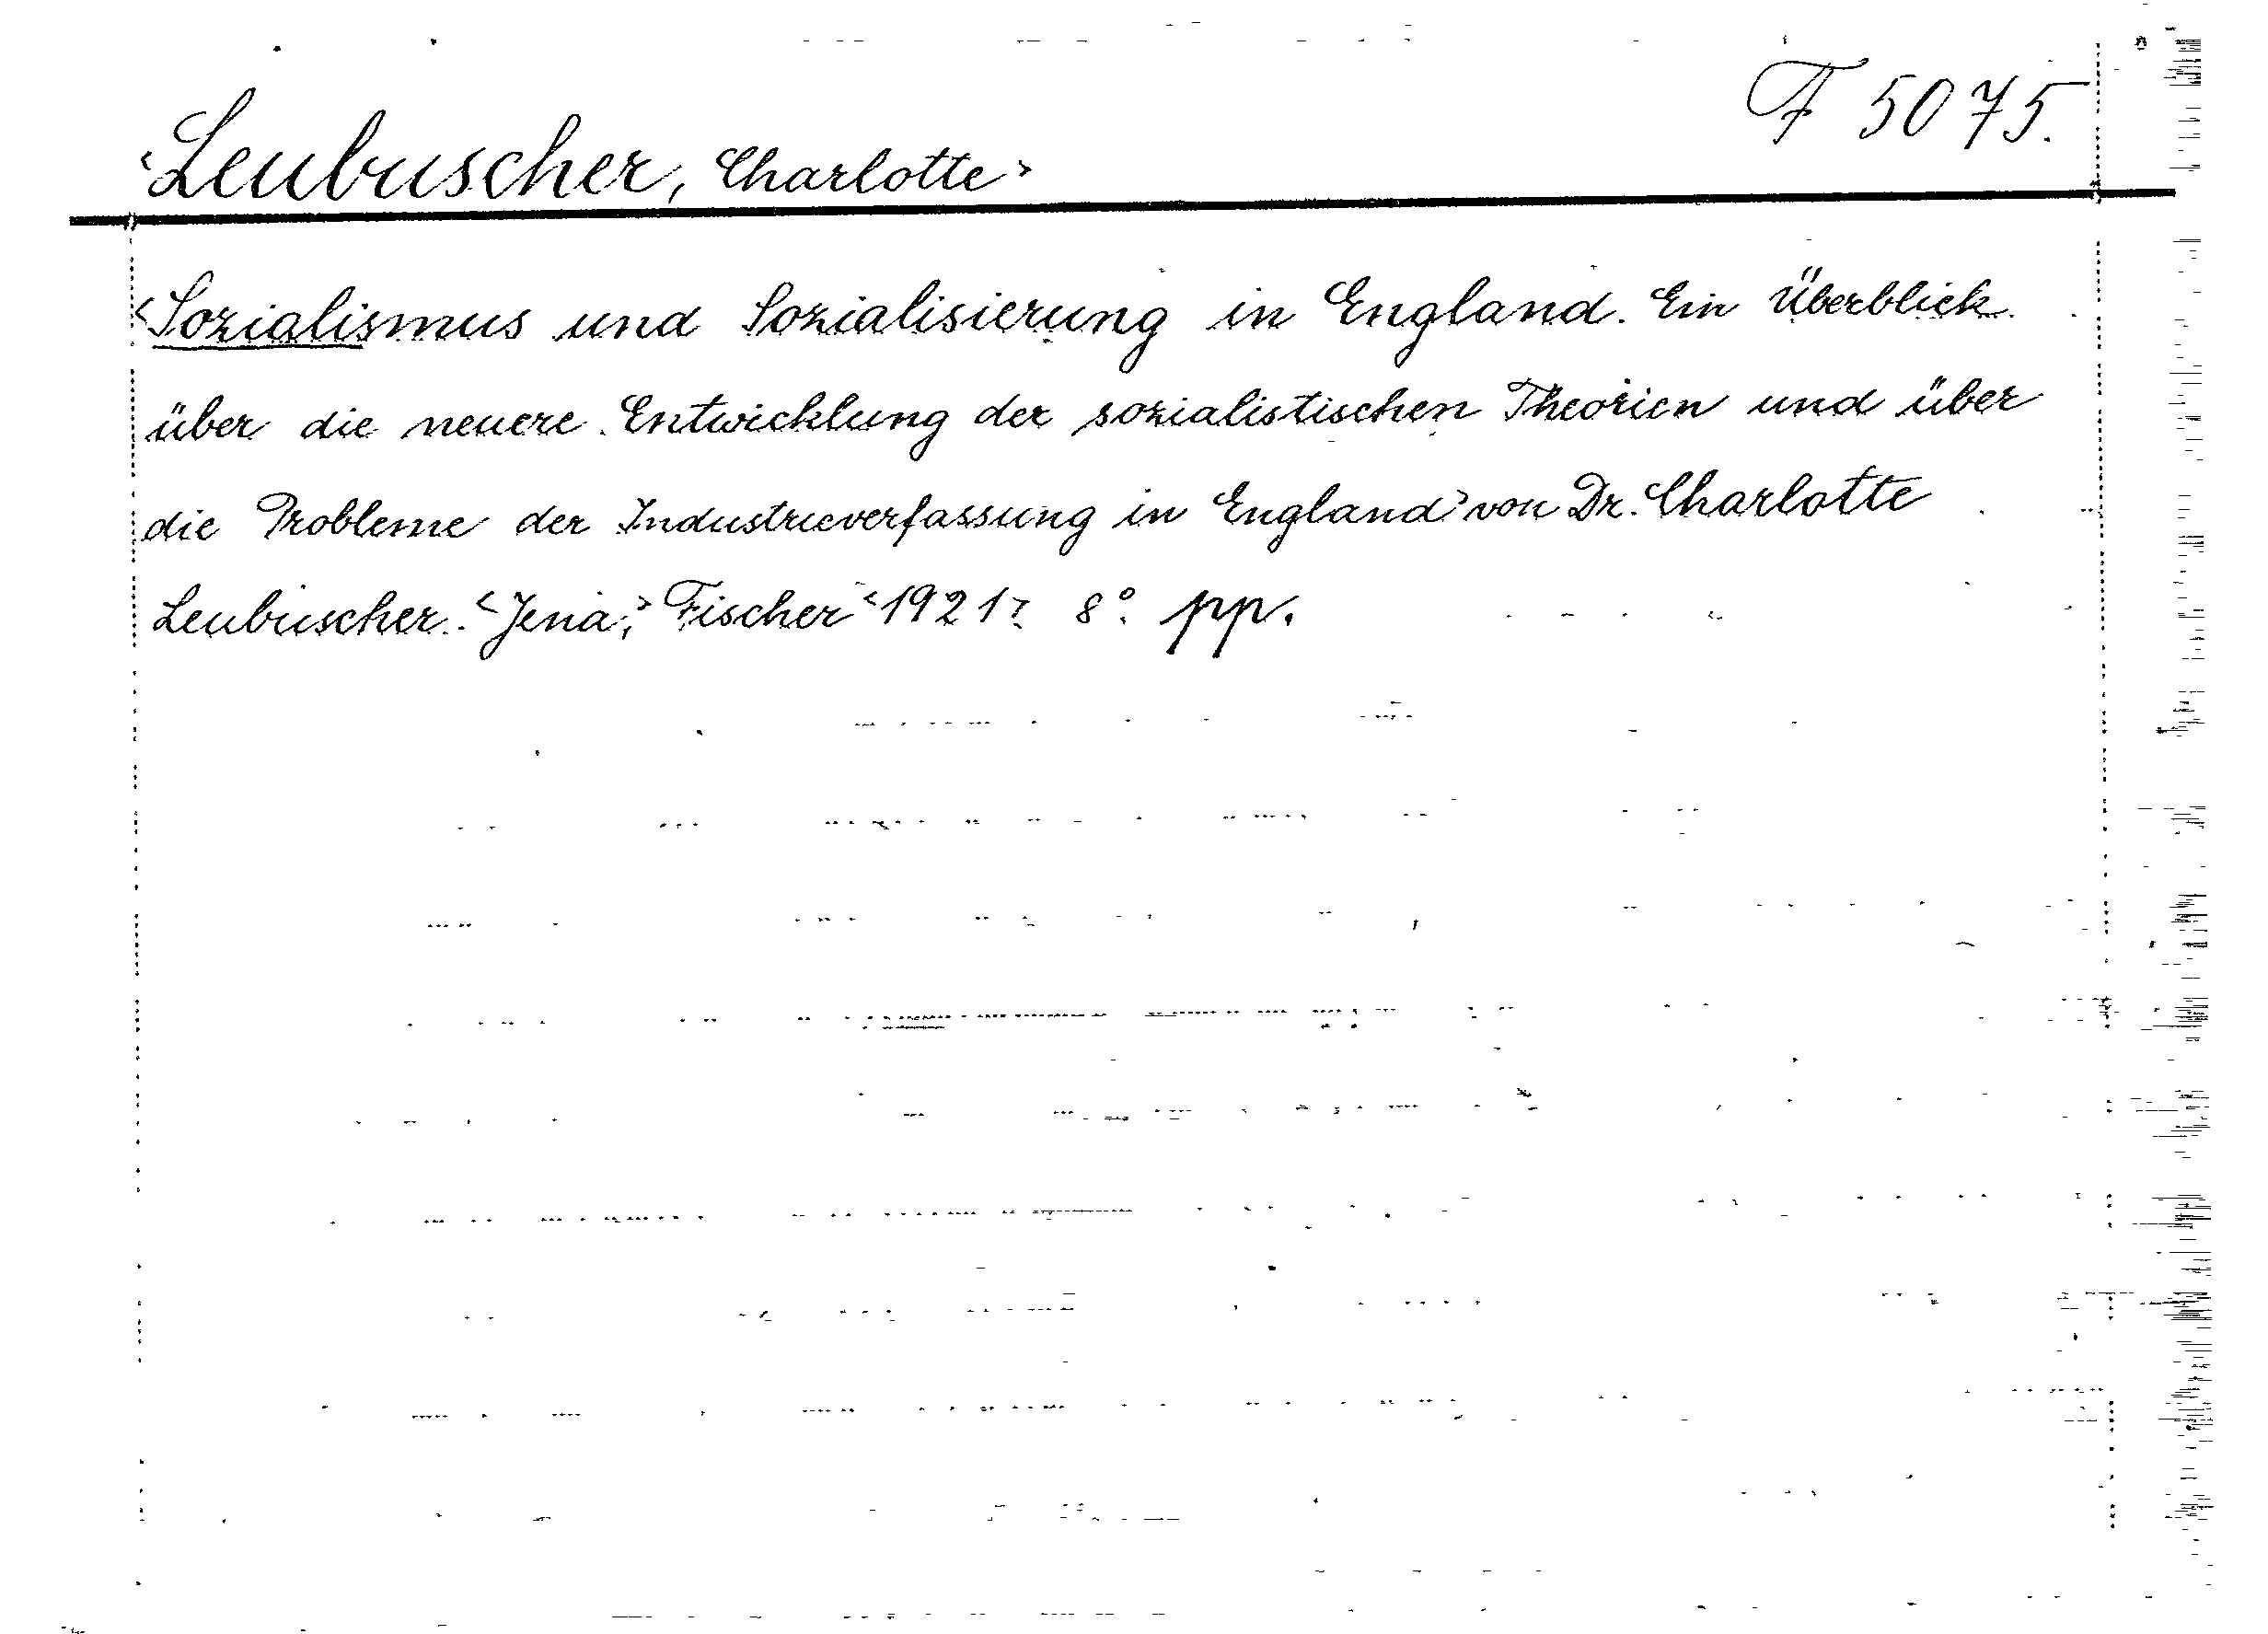 F 5075.
<Leubuscher, Charlotte>
<Sozialismus und Sozialisierung in England. Ein Überblick
über die neuere Entwicklung der sozialistischen Theorien und über
die Probleme der Industrieverfassung in England> von Dr. Charlotte
Leubuscher. <Jena,> Fischer <1921>. 8°. pp.